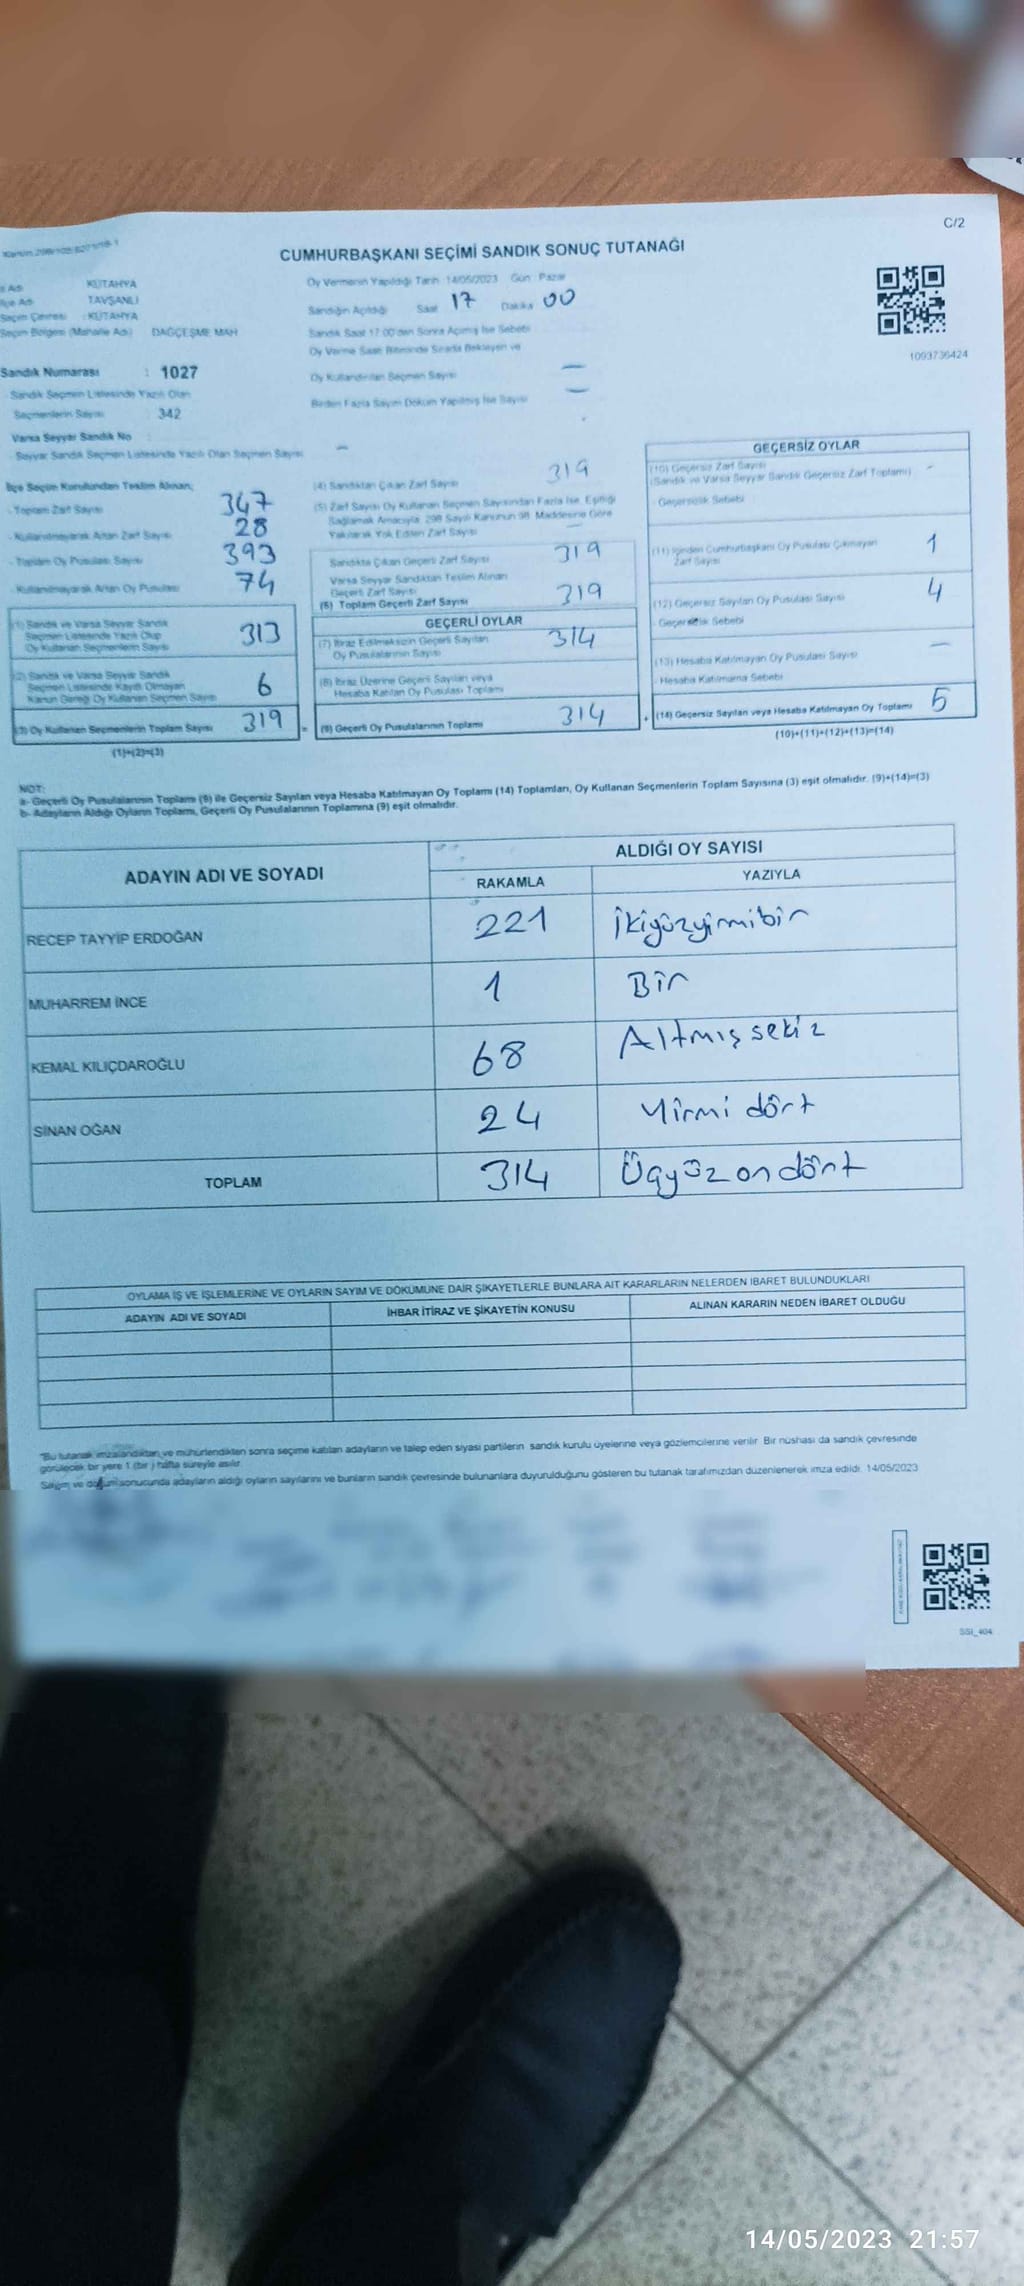 C/2
CUMHURBAŞKANI SEÇİMİ SANDIK SONUÇ TUTANAĞI
KÜTAHYA
İlçe Adı TAVŞANLI
Seçim Çevresi : KÜTAHYA
Seçim Bölgesi (Mahalle Adı) DAĞÇEŞME MAH
Sandık Numarası : 1027
Sandık Seçmen Listesinde Yazılı Olan
Seçmenlerin Sayısı 342
Varsa Seyyar Sandık No
Seyyar Sandık Seçmen Listesinde Yazılı Olan Seçmen Sayısı —
Oy Vermenin Yapıldığı Tarih : 14/05/2023 Gün : Pazar
Sandığın Açıldığı Saat 17 Dakika 00
Sandık Saat 17.00'den Sonra Açılmış İse Sebebi
Oy Verme Saati Bitiminde Sırada Bekleyen ve
Oy Kullandırılan Seçmen Sayısı —
Birden Fazla Sayım Döküm Yapılmış İse Sayısı —
1093736424
İlçe Seçim Kurulundan Teslim Alınan;
- Toplam Zarf Sayısı 347
- Kullanılmayarak Artan Zarf Sayısı 28
- Toplam Oy Pusulası Sayısı 393
- Kullanılmayarak Artan Oy Pusulası 74
(1) Sandık ve Varsa Seyyar Sandık
Seçmen Listesinde Yazılı Olup
Oy Kullanan Seçmenlerin Sayısı 313
(2) Sandık ve Varsa Seyyar Sandık
Seçmen Listesinde Kayıtlı Olmayan
Kanun Gereği Oy Kullanan Seçmen Sayısı 6
(3) Oy Kullanan Seçmenlerin Toplam Sayısı 319
(1)+(2)=(3)
(4) Sandıktan Çıkan Zarf Sayısı 319
(5) Zarf Sayısı Oy Kullanan Seçmen Sayısından Fazla İse, Eşitliği
Sağlamak Amacıyla 298 Sayılı Kanunun 98. Maddesine Göre
Yakılarak Yok Edilen Zarf Sayısı —
Sandıkta Çıkan Geçerli Zarf Sayısı 319
Varsa Seyyar Sandıktan Teslim Alınan
Geçerli Zarf Sayısı
(6) Toplam Geçerli Zarf Sayısı 319
GEÇERLİ OYLAR
(7) İtiraz Edilmeksizin Geçerli Sayılan
Oy Pusulalarının Sayısı 314
(8) İtiraz Üzerine Geçerli Sayılan veya
Hesaba Katılan Oy Pusulası Toplamı
(9) Geçerli Oy Pusulalarının Toplamı 314
GEÇERSİZ OYLAR
(10) Geçersiz Zarf Sayısı
(Sandık ve Varsa Seyyar Sandık Geçersiz Zarf Toplamı) -
- Geçersizlik Sebebi
(11) İçinden Cumhurbaşkanı Oy Pusulası Çıkmayan
Zarf Sayısı 1
(12) Geçersiz Sayılan Oy Pusulası Sayısı 4
- Geçersizlik Sebebi
(13) Hesaba Katılmayan Oy Pusulası Sayısı —
- Hesaba Katılmama Sebebi
(14) Geçersiz Sayılan veya Hesaba Katılmayan Oy Toplamı 5
(10)+(11)+(12)+(13)=(14)
NOT:
a- Geçerli Oy Pusulalarının Toplamı (9) ile Geçersiz Sayılan veya Hesaba Katılmayan Oy Toplamı (14) Toplamları, Oy Kullanan Seçmenlerin Toplam Sayısına (3) eşit olmalıdır. (9)+(14)=(3)
b- Adayların Aldığı Oyların Toplamı, Geçerli Oy Pusulalarının Toplamına (9) eşit olmalıdır.
ADAYIN ADI VE SOYADI
ALDIĞI OY SAYISI
RAKAMLA YAZIYLA
RECEP TAYYİP ERDOĞAN 221 İkiyüzyirmibir
MUHARREM İNCE 1 Bir
KEMAL KILIÇDAROĞLU 68 Altmışsekiz
SİNAN OĞAN 24 Yirmi dört
TOPLAM 314 Üçyüz on dört
OYLAMA İŞ VE İŞLEMLERİNE VE OYLARIN SAYIM VE DÖKÜMÜNE DAİR ŞİKAYETLERLE BUNLARA AİT KARARLARIN NELERDEN İBARET BULUNDUKLARI
ADAYIN ADI VE SOYADI İHBAR İTİRAZ VE ŞİKAYETİN KONUSU ALINAN KARARIN NEDEN İBARET OLDUĞU
"Bu tutanak imzalandıktan ve mühürlendikten sonra seçime katılan adayların ve talep eden siyasi partilerin sandık kurulu üyelerine veya gözlemcilerine verilir. Bir nüshası da sandık çevresinde
görülecek bir yere 1 (bir ) hafta süreyle asılır.
Sayım ve döküm sonucunda adayların aldığı oyların sayılarını ve bunların sandık çevresinde bulunanlara duyurulduğunu gösteren bu tutanak tarafımızdan düzenlenerek imza edildi. 14/05/2023
SSI_404
14/05/2023 21:57